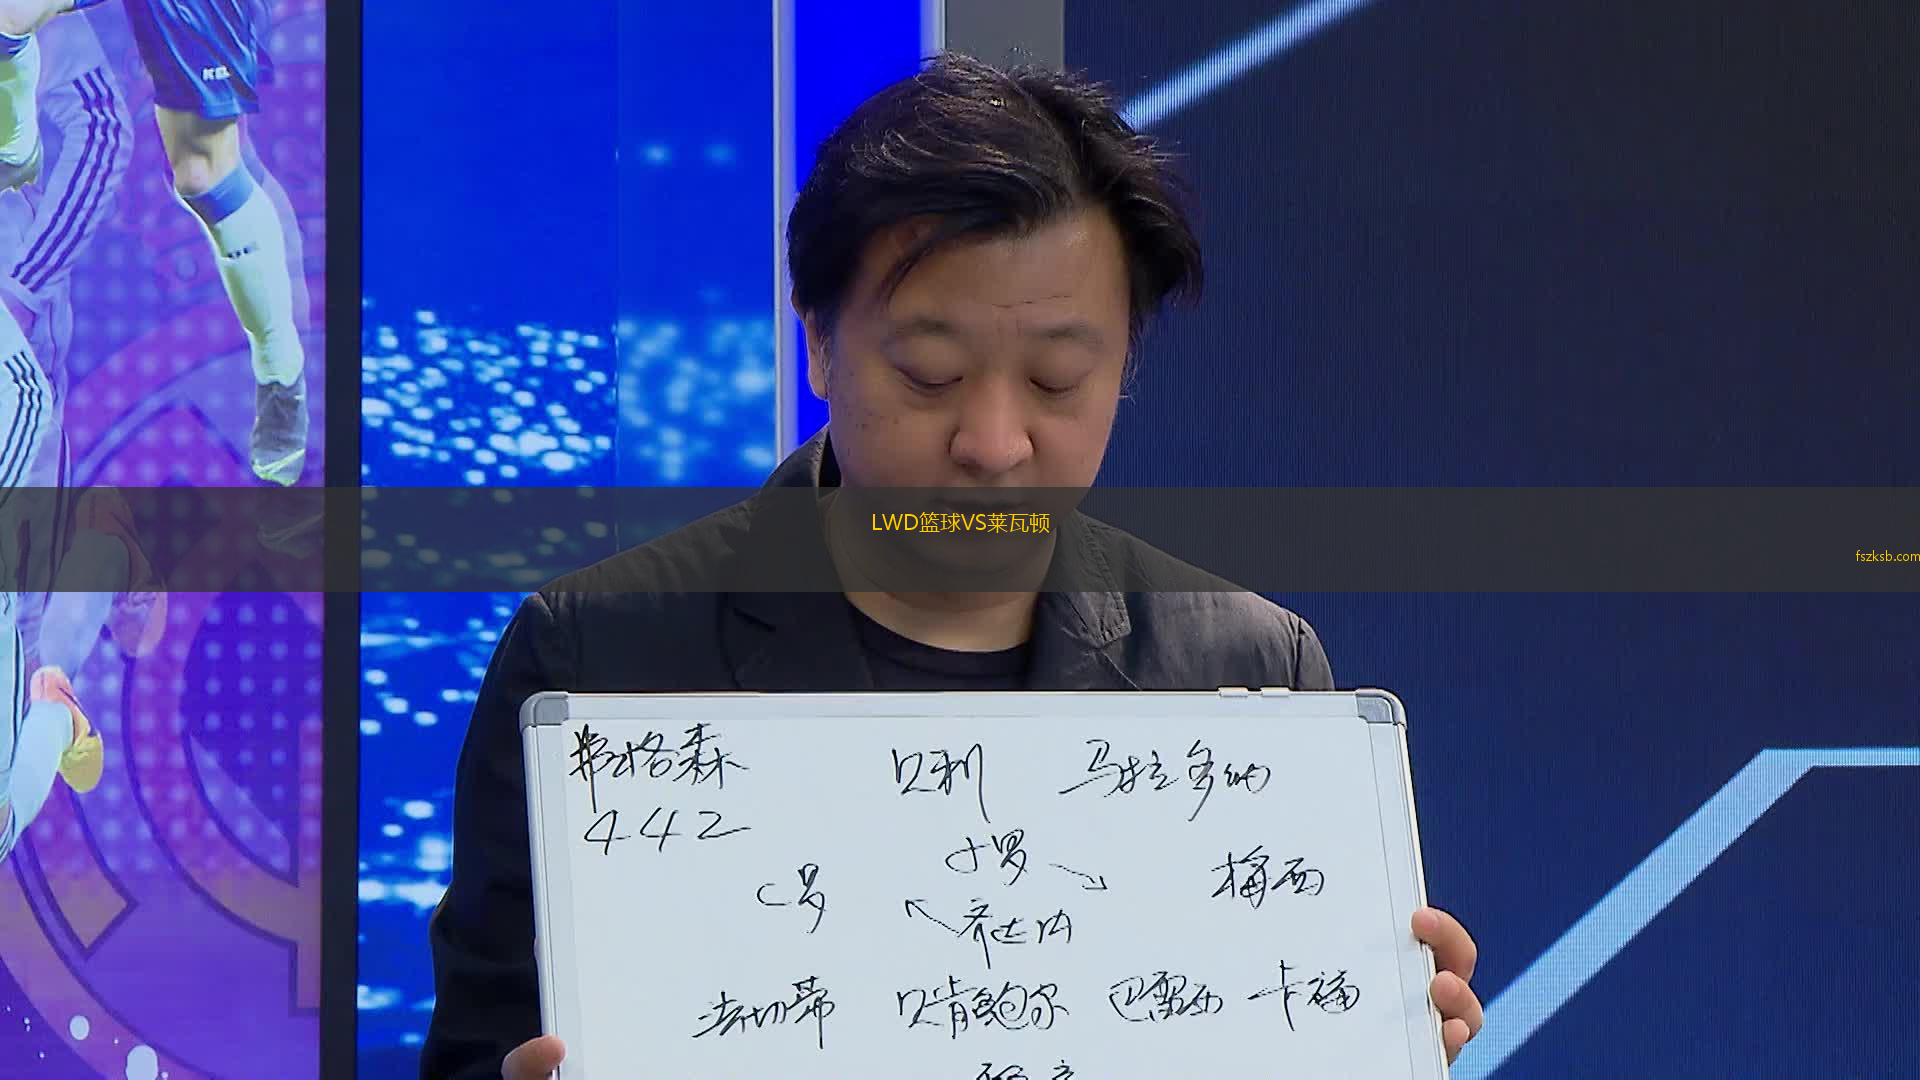 LWD篮球VS莱瓦顿
fszksb.com
弗格森 贝利 马拉多纳
442
小罗
C罗 梅西
齐达内
法切蒂 贝肯鲍尔 巴雷西 卡福